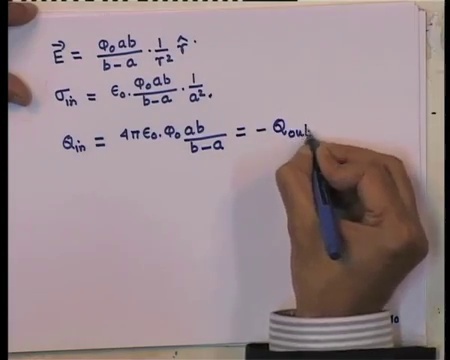 E⃗ = φ₀ab/(b−a) · 1/r² r̂.
σin = ε₀. φ₀ab/(b−a) · 1/a².
Qin = 4πε₀. φ₀ ab/(b−a) = − Qout
10